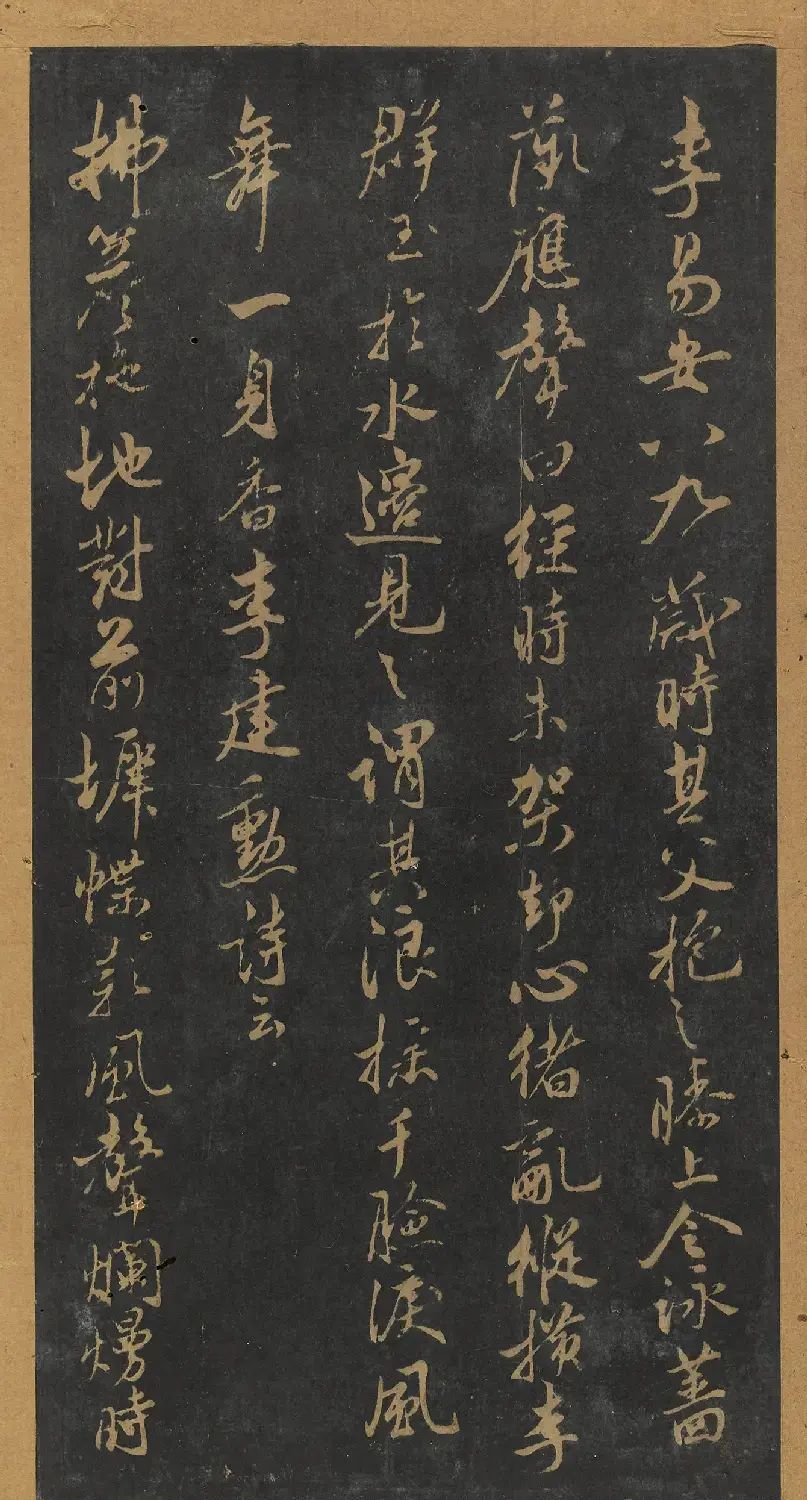 李易安八九歲時其父抱之膝上令詠薔
薇應聲曰經時未架却心緒亂縱橫李
群玉於水邊見之謂其浪揉千臉淚風
舞一身香李建勳詩云
拂簷拖地對前墀蝶影風聲爛熳時